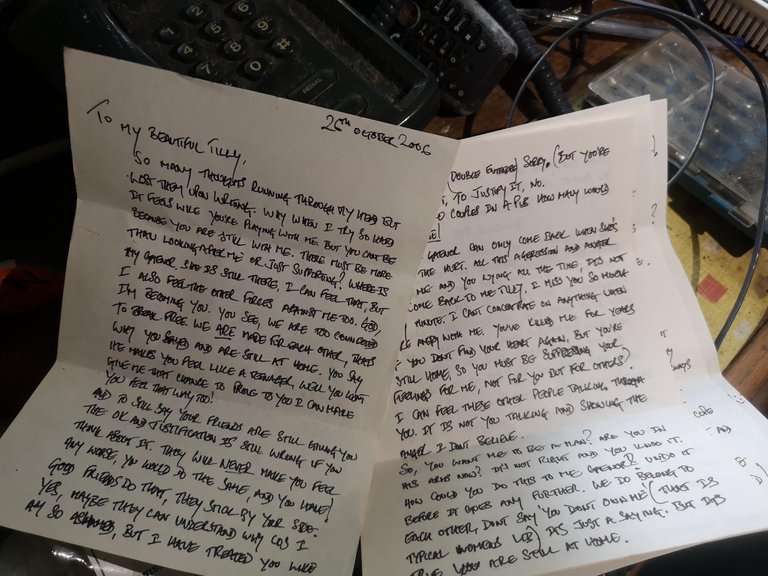 26TH OCTOBER 2006
TO MY BEAUTIFUL TILLY,
SO MANY THOUGHTS RUNNING THROUGH MY HEAD BUT
LOST THEM UPON WRITING. WHY WHEN I TRY SO HARD
IT FEELS LIKE YOU'RE PLAYING WITH ME. BUT YOU CAN BE
BECAUSE YOU ARE STILL WITH ME. THERE MUST BE MORE
THAN LOOKING AFTER ME OR JUST SUPPORTING? WHERE IS
MY GRENOR. SHE IS STILL THERE, I CAN FEEL THAT, BUT
I ALSO FEEL THE OTHER FORCES AGAINST ME TOO. GOD,
I'M BECOMING YOU. YOU SEE, WE ARE TOO CONNECTED
TO BREAK FREE. WE ARE MADE FOR EACH OTHER, THATS
WHY YOU STAYED AND ARE STILL AT HOME. YOU SAY
HE MAKES YOU FEEL LIKE A TEENAGER, WELL YOU WONT
GIVE ME THAT CHANCE TO PROVE TO YOU I CAN MAKE
YOU FEEL THAT WAY TOO!
AND TO STILL SAY YOUR FRIENDS ARE STILL GIVING YOU
THE OK AND JUSTIFICATION IS STILL WRONG IF YOU
THINK ABOUT IT. THEY WILL NEVER MAKE YOU FEEL
ANY WORSE, YOU WOULD DO THE SAME, AND YOU HAVE!
GOOD FRIENDS DO THAT, THEY STICK BY YOUR SIDE.
YES, MAYBE THEY CAN UNDERSTAND WHY COS I
AM SO ASHAMED, BUT I HAVE TREATED YOU LIKE
DOUBLE ENTENDRE) SORRY. (BUT YOU'RE
, TO JUSTIFY IT, NO.
COUPLES IN A PUB HOW MANY WOULD
GRENOR CAN ONLY COME BACK WHEN SHE'S
THE HURT. ALL THIS AGGRESSION AND ANGER
ME AND YOU LYING ALL THE TIME, IT'S NOT
COME BACK TO ME TILLY. I MISS YOU SO MUCH
MINUTE. I CANT CONCENTRATE ON ANYTHING WHEN
ANGRY WITH ME. YOU'VE KILLED ME FOR YEARS
IF YOU DON'T FIND YOUR HEART AGAIN, BUT YOU'RE
STILL HOME, SO YOU MUST BE SUPPRESSING YOUR
FEELINGS FOR ME, NOT FOR YOU BUT FOR OTHERS)
I CAN FEEL THESE OTHER PEOPLE TALKING, THROUGH
YOU. IT IS NOT YOU TALKING AND SHOWING THE
ANGER I DONT BELIEVE.
SO, YOU WANT ME TO BE A MAN? ARE YOU IN
HIS ARMS NOW? IT'S NOT RIGHT AND YOU KNOW IT.
HOW COULD YOU DO THIS TO ME GRENOR? UNDO IT
BEFORE IT GOES ANY FURTHER. WE DO BELONG TO
EACH OTHER, DONT SAY 'YOU DON'T OWN ME' (THAT IS
TYPICAL WOMENS LIB) ITS JUST A SAYING. BUT ITS
TRUE YOU ARE STILL AT HOME.
REDIAL